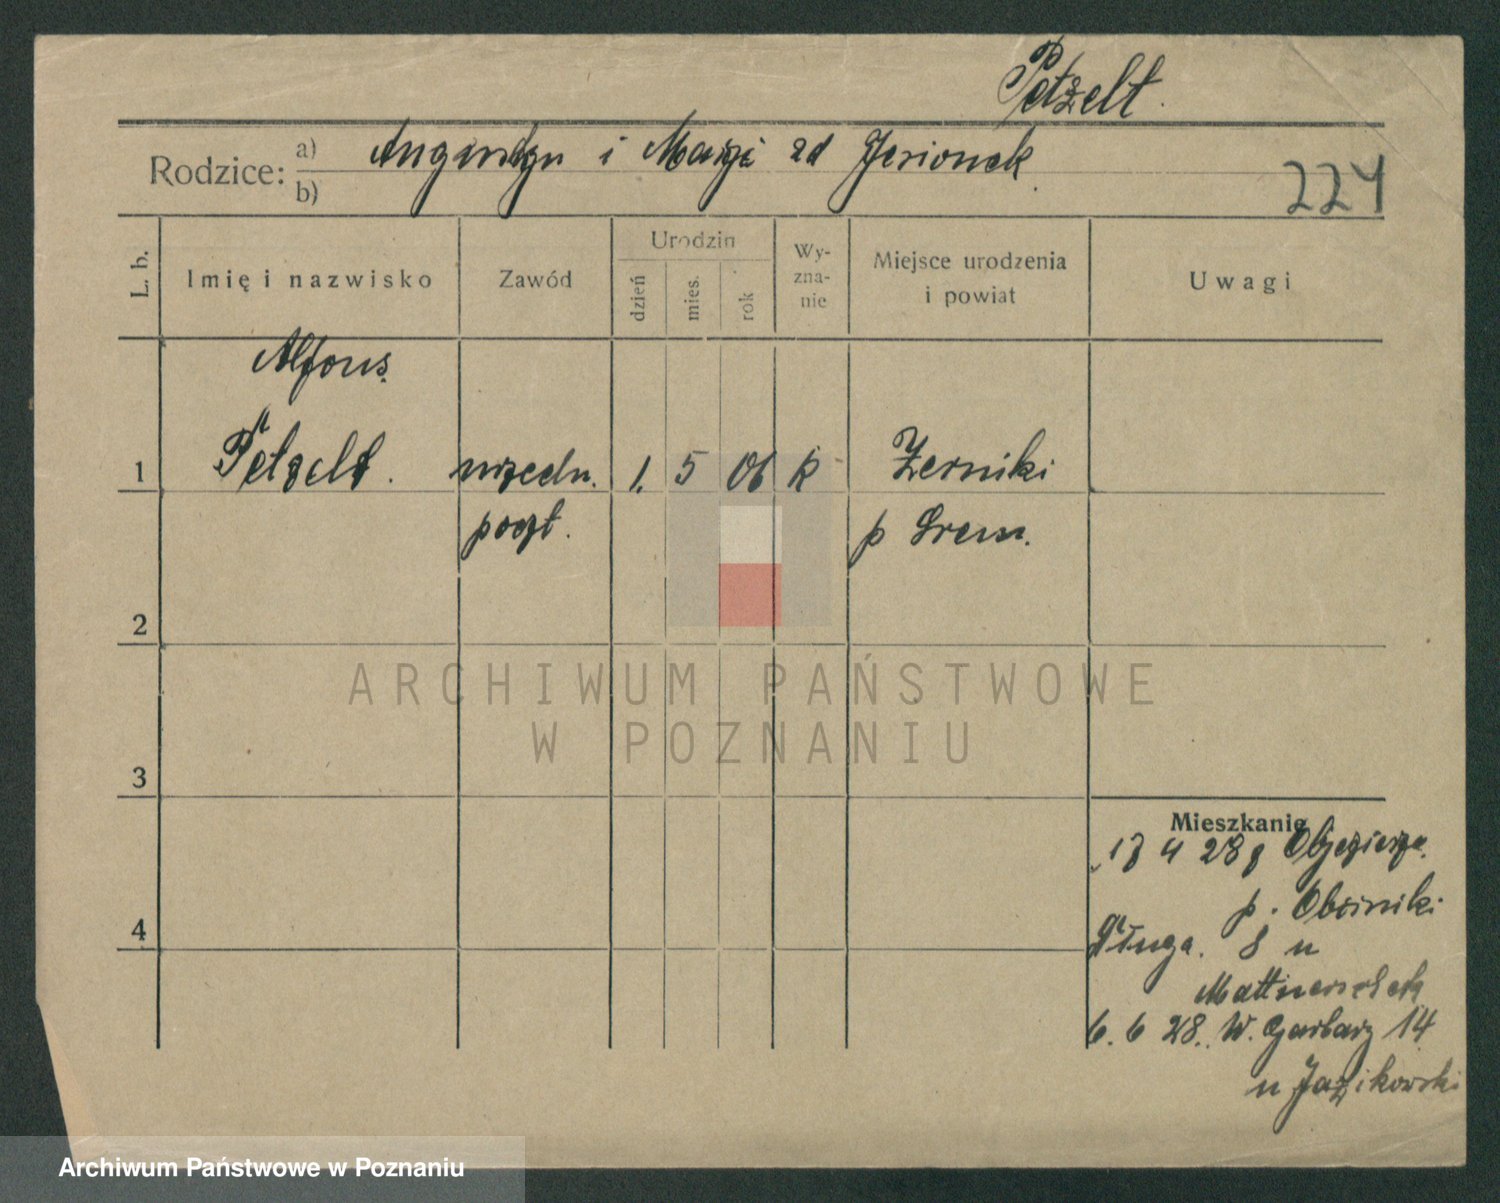 Petzelt.
Rodzice: a) Augustyn i Marja zd Jesionek
b)
224
L. b.
Imię i nazwisko
Zawód
Urodzin
dzień
mies.
rok
Wy-
zna-
nie
Miejsce urodzenia
i powiat
Uwagi
Alfons
1 Petzelt. urzedn. 1. 5 06 k Zerniki
poczt. p Srem.
2
3
4
ARCHIWUM PAŃSTWOWE
W POZNANIU
Mieszkanie
4 28
p. Oborniki
Długa. 8 u
6. 6 28. W. Garbary 14
u
Archiwum Państwowe w Poznaniu